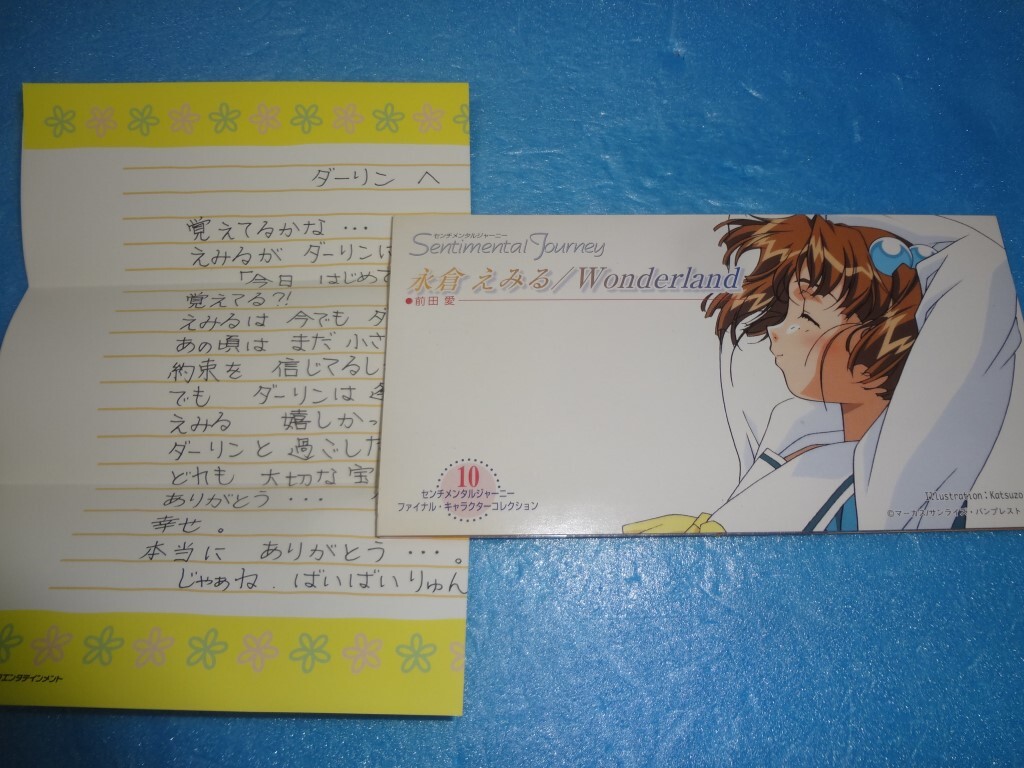 ダーリン へ
覚えてるかな …
えみるが ダーリンに
「今日 はじめて
覚えてる?!
えみるは 今でも ダ
あの頃は まだ 小さ
約束を 信じてるし
でも ダーリンは
えみる 嬉しかっ
ダーリンと 過ごした
どれも 大切な宝
ありがとう …
幸せ。
本当に ありがとう …。
じゃぁね . ばいばいりゅん
エンタテインメント
センチメンタルジャーニー
Sentimental Journey
永倉 えみる/Wonderland
●前田 愛
10
センチメンタルジャーニー
ファイナル・キャラクターコレクション
Illustration:Katsuzo
©マーカス/サンライズ・バンプレスト